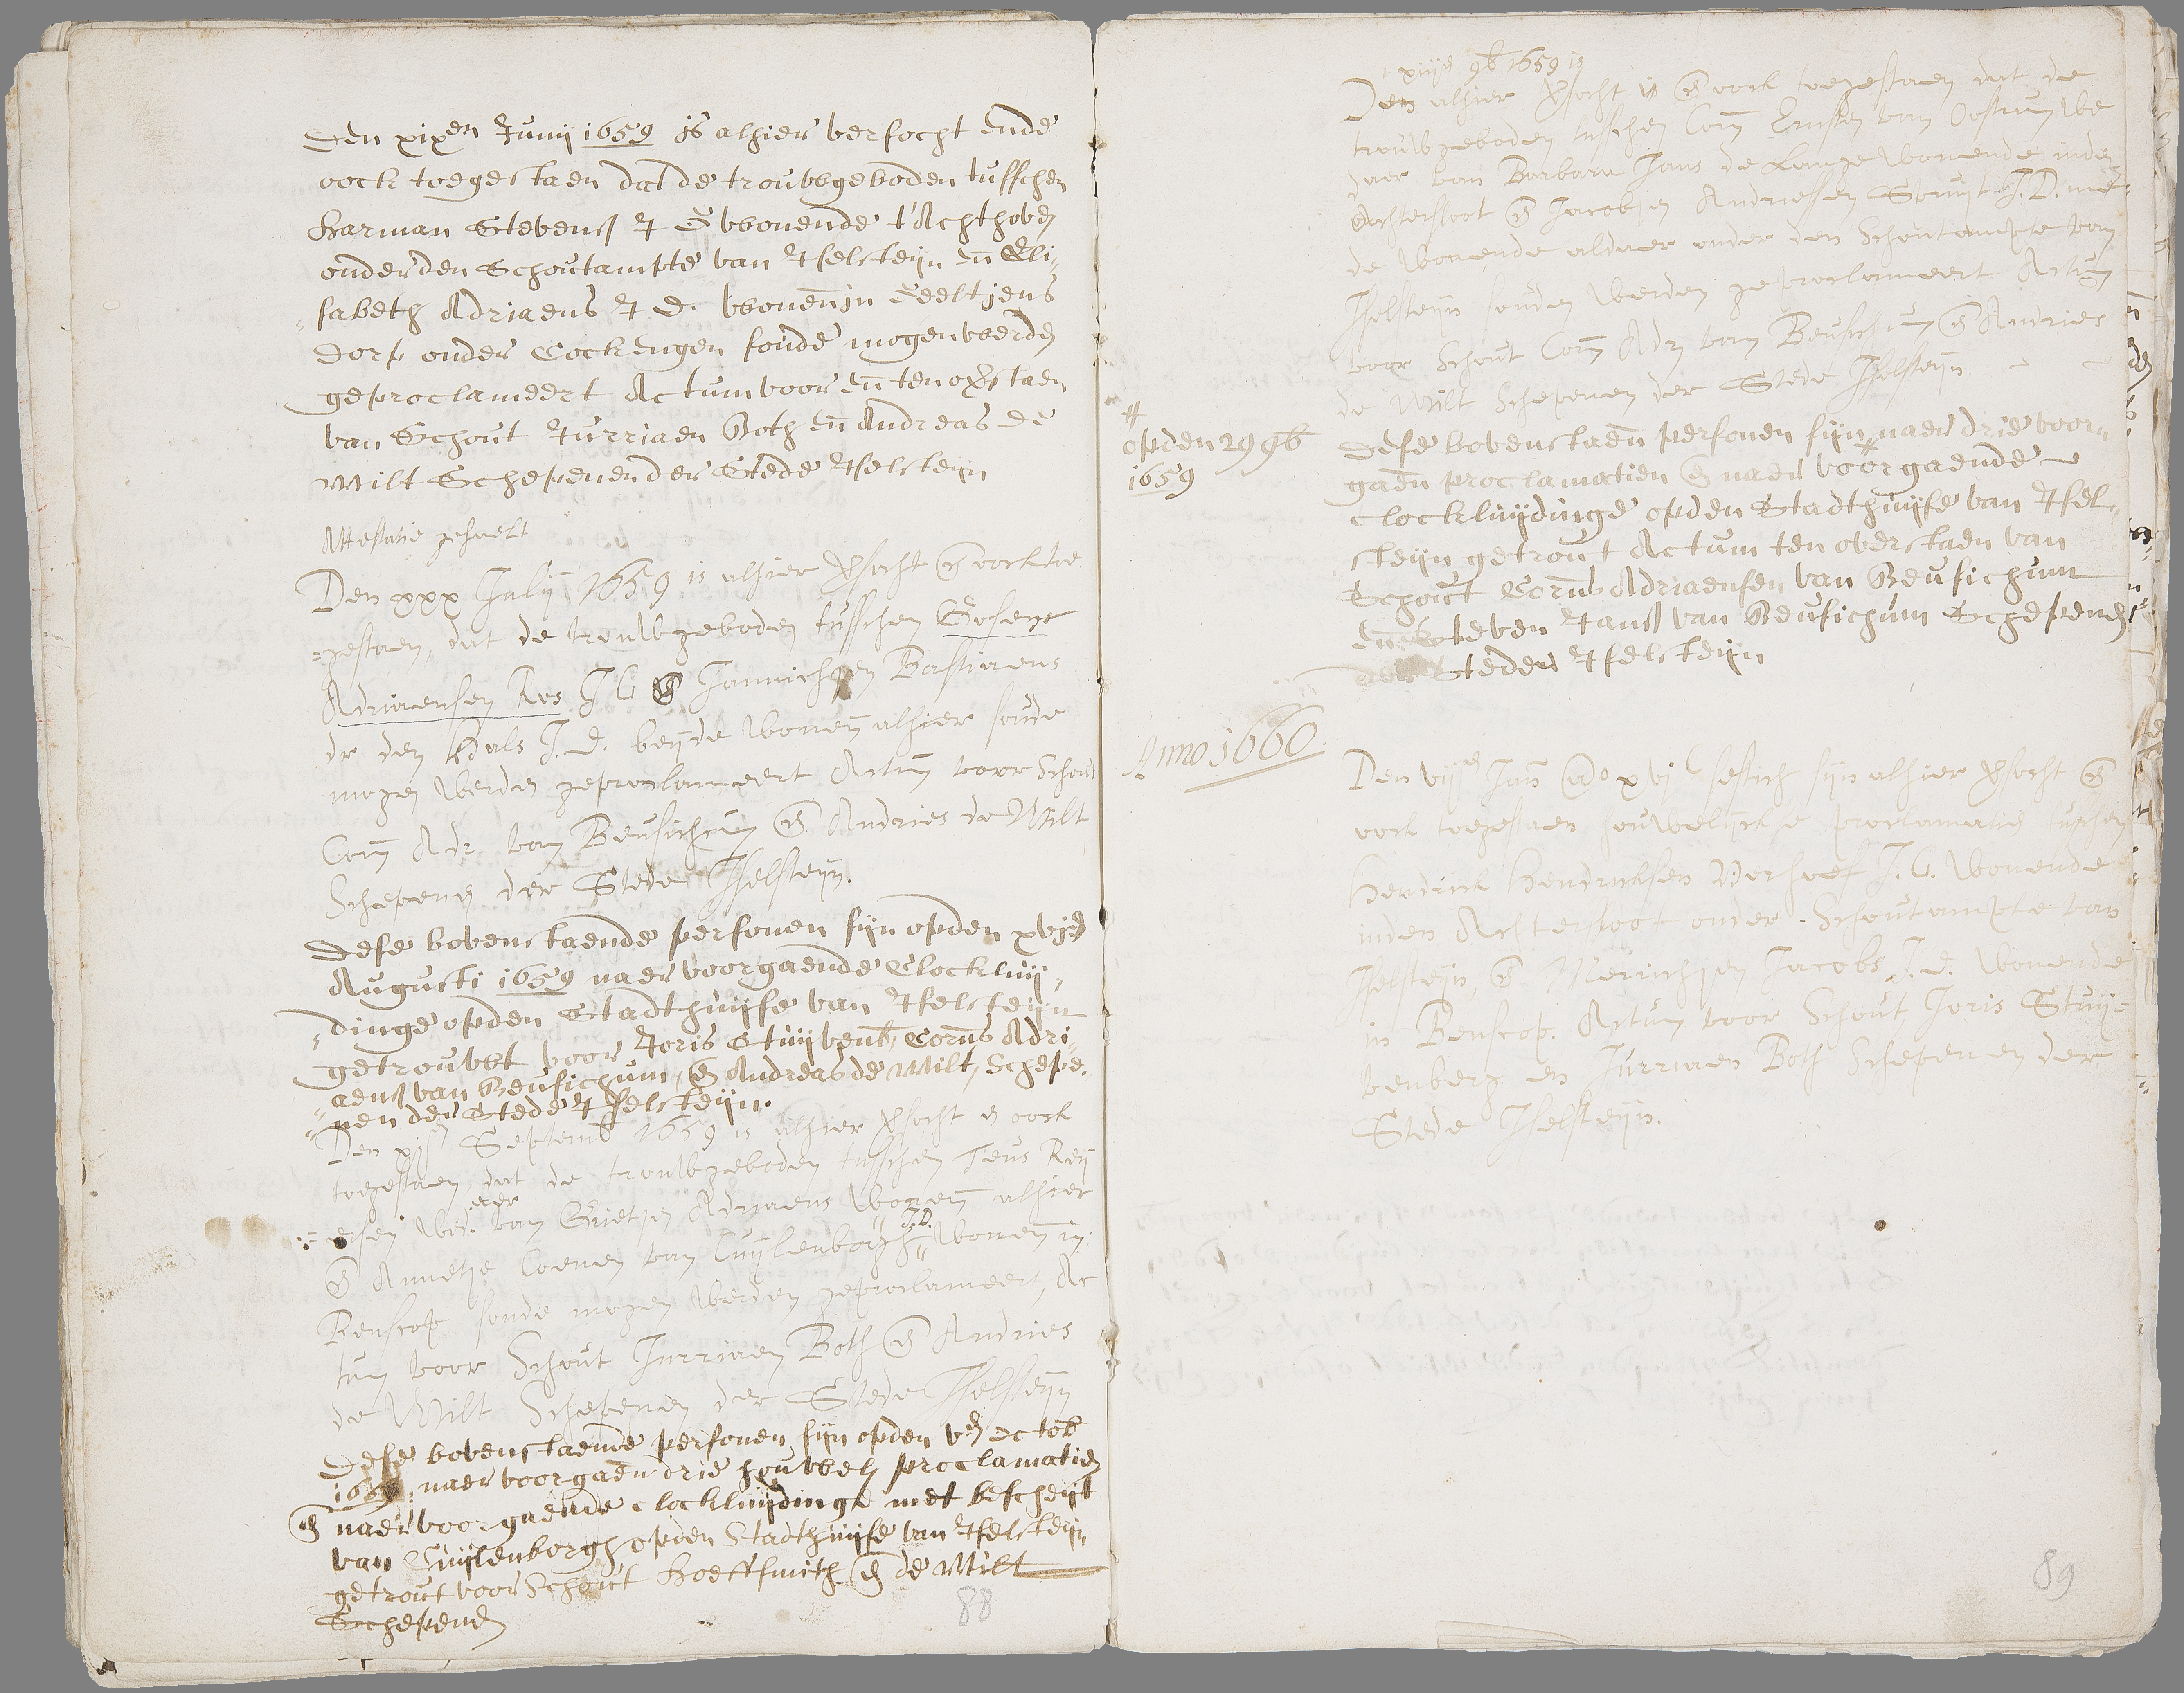 Den xixen Junij 1659 js alhier versocht ende
oock toegestaen dat de trouwgeboden tusschen
Harman Stevenß J G woonende t'Achthoven
onder den Schoutampte van Jselsteijn en Eli-
sabeth Adriaens J. D. woonen in Geeltjens
dorp onder Cockengen soude mogen werden
geproclameert Actum voor en ten overstaen
van Schout Jurriaen Both en Andreas de
Wilt Schepenen der Stede Jselsteijn
Attestatie gehaelt
Den xxx Julij 1659 is alhier versocht en oock toe
=gestaen, dat de trouwgeboden tusschen Gosens
Adriaensen Ros J G en Jannichjen Bastiaens
dr den Hals J. d. beijde wonen alhier soude
mogen werden geproclameert Actum voor Schout
Corn Adr van Beusichum en Andries de Wilt
Schepenen der Stede Jselsteijn.
Dese bovenstaende persoonen sijn opden xvijen
Augusti 1659 naer voorgaende Clockluij-
dinge opden Stadthuijse van Jselsteijn
getrouwt voor Joris Stuijvenb, Corns Adri
aenß van Beusichum, en Andreas de Wilt, Schepe-
nen der Stede Jselsteijn.
Den Septemb 1659 is alhier versocht en oock
toegestaen dat de trouwgeboden tusschen Teus Reij
=ersen wed.aer van Grietjen Adriaens wonen alhier
en Annetje Coenen van Cuijlenborgh J.D. wonen in
Benscop soude mogen werden geproclameert, Ac
tum voor Schout Jurriaen Both en Andries
de Wilt Schepenen der Stede Jselsteijn
Dese bovenstaende persoonen sijn opden ven octob
1659 naer voorgaen drie houwel proclamatien
en naer voorgaende clockluijdinge met bescheijt
van Cuijlenborgh opden Stadthuijse van Jselsteijn
getrout voor Schout Hoeffsmith en de Wilt
Schepenen
88
xiijen 9b 1659 is
Den alhier versocht en oock toegestaen dat de
trouwgeboden tusschen Corn van Oostrum we
daer van Barbara Jans de Lange wonende inde
Achtersloot en Jacobjen Andriessen Spruijt J.D. me-
de wonende aldaer onder den Schoutampte van
Jselsteijn souden werden geproclameert Actum
voor Schout Corn Adr van Beusichum en Andries
de Wilt Schepenen der Stede Jselsteijn
#
opden 29 9b
1659
Dese bovenstaen persoonen sijn naer drie voor-
gaen proclamatien en naer # voorgaende
clockluijdinge opden Stadthuijse van Jsel-
steijn getrout Actum ten overstaen van
Schout Corns Adriaensen van Beusichum
en Steven Janß van Beusichum Schepenen
der Steden Jselsteijn
Anno 1660
Den vijen Jan ao xvj sestich sijn alhier versocht en
oock toegestaen houwelijckse proclamatien tusschen
Hendrick Hendricksen Verhoef J.G. wonende
inden Achtersloot onder Schoutampte van
Jselsteijn, en Merrichjen Jacobs J.d. wonende
in Benscop. Actum voor Schout Joris Stuij=
venberg en Jurriaen Both Schepenen der
Stede Jselsteijn.
89